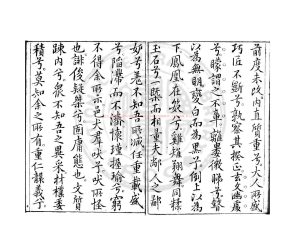 前度未改內直質重兮大人所盛
巧匠不斲兮孰察其揆正玄文幽處
兮矇謂之不章離婁微睇兮瞽
以為無明變白而為黑兮倒上以為
下鳳凰在笯兮雞雉翔舞同糅
玉石兮一槩而相量夫黨人之鄙
妒兮羌不知吾所臧任重載盛
兮陷滯而不濟懷瑾握瑜兮窮
不得余所示邑犬羣吠兮吠所怪
也誹俊疑桀兮固庸態也文質
疎內兮衆不知吾之異采材樸委
積兮莫知余之所有重仁襲義兮